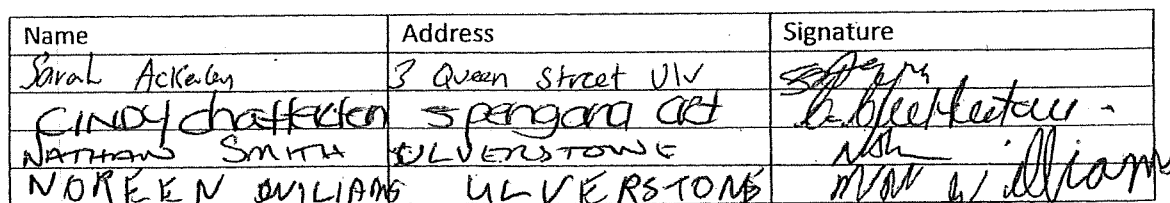 Name Address Signature
Sarah Ackerley 3 Queen Street Ulv
CINDY chatterton 5 pengana crt
NATHAN SMITH ULVERSTONE
NOREEN WILLIAMS ULVERSTONE Williams